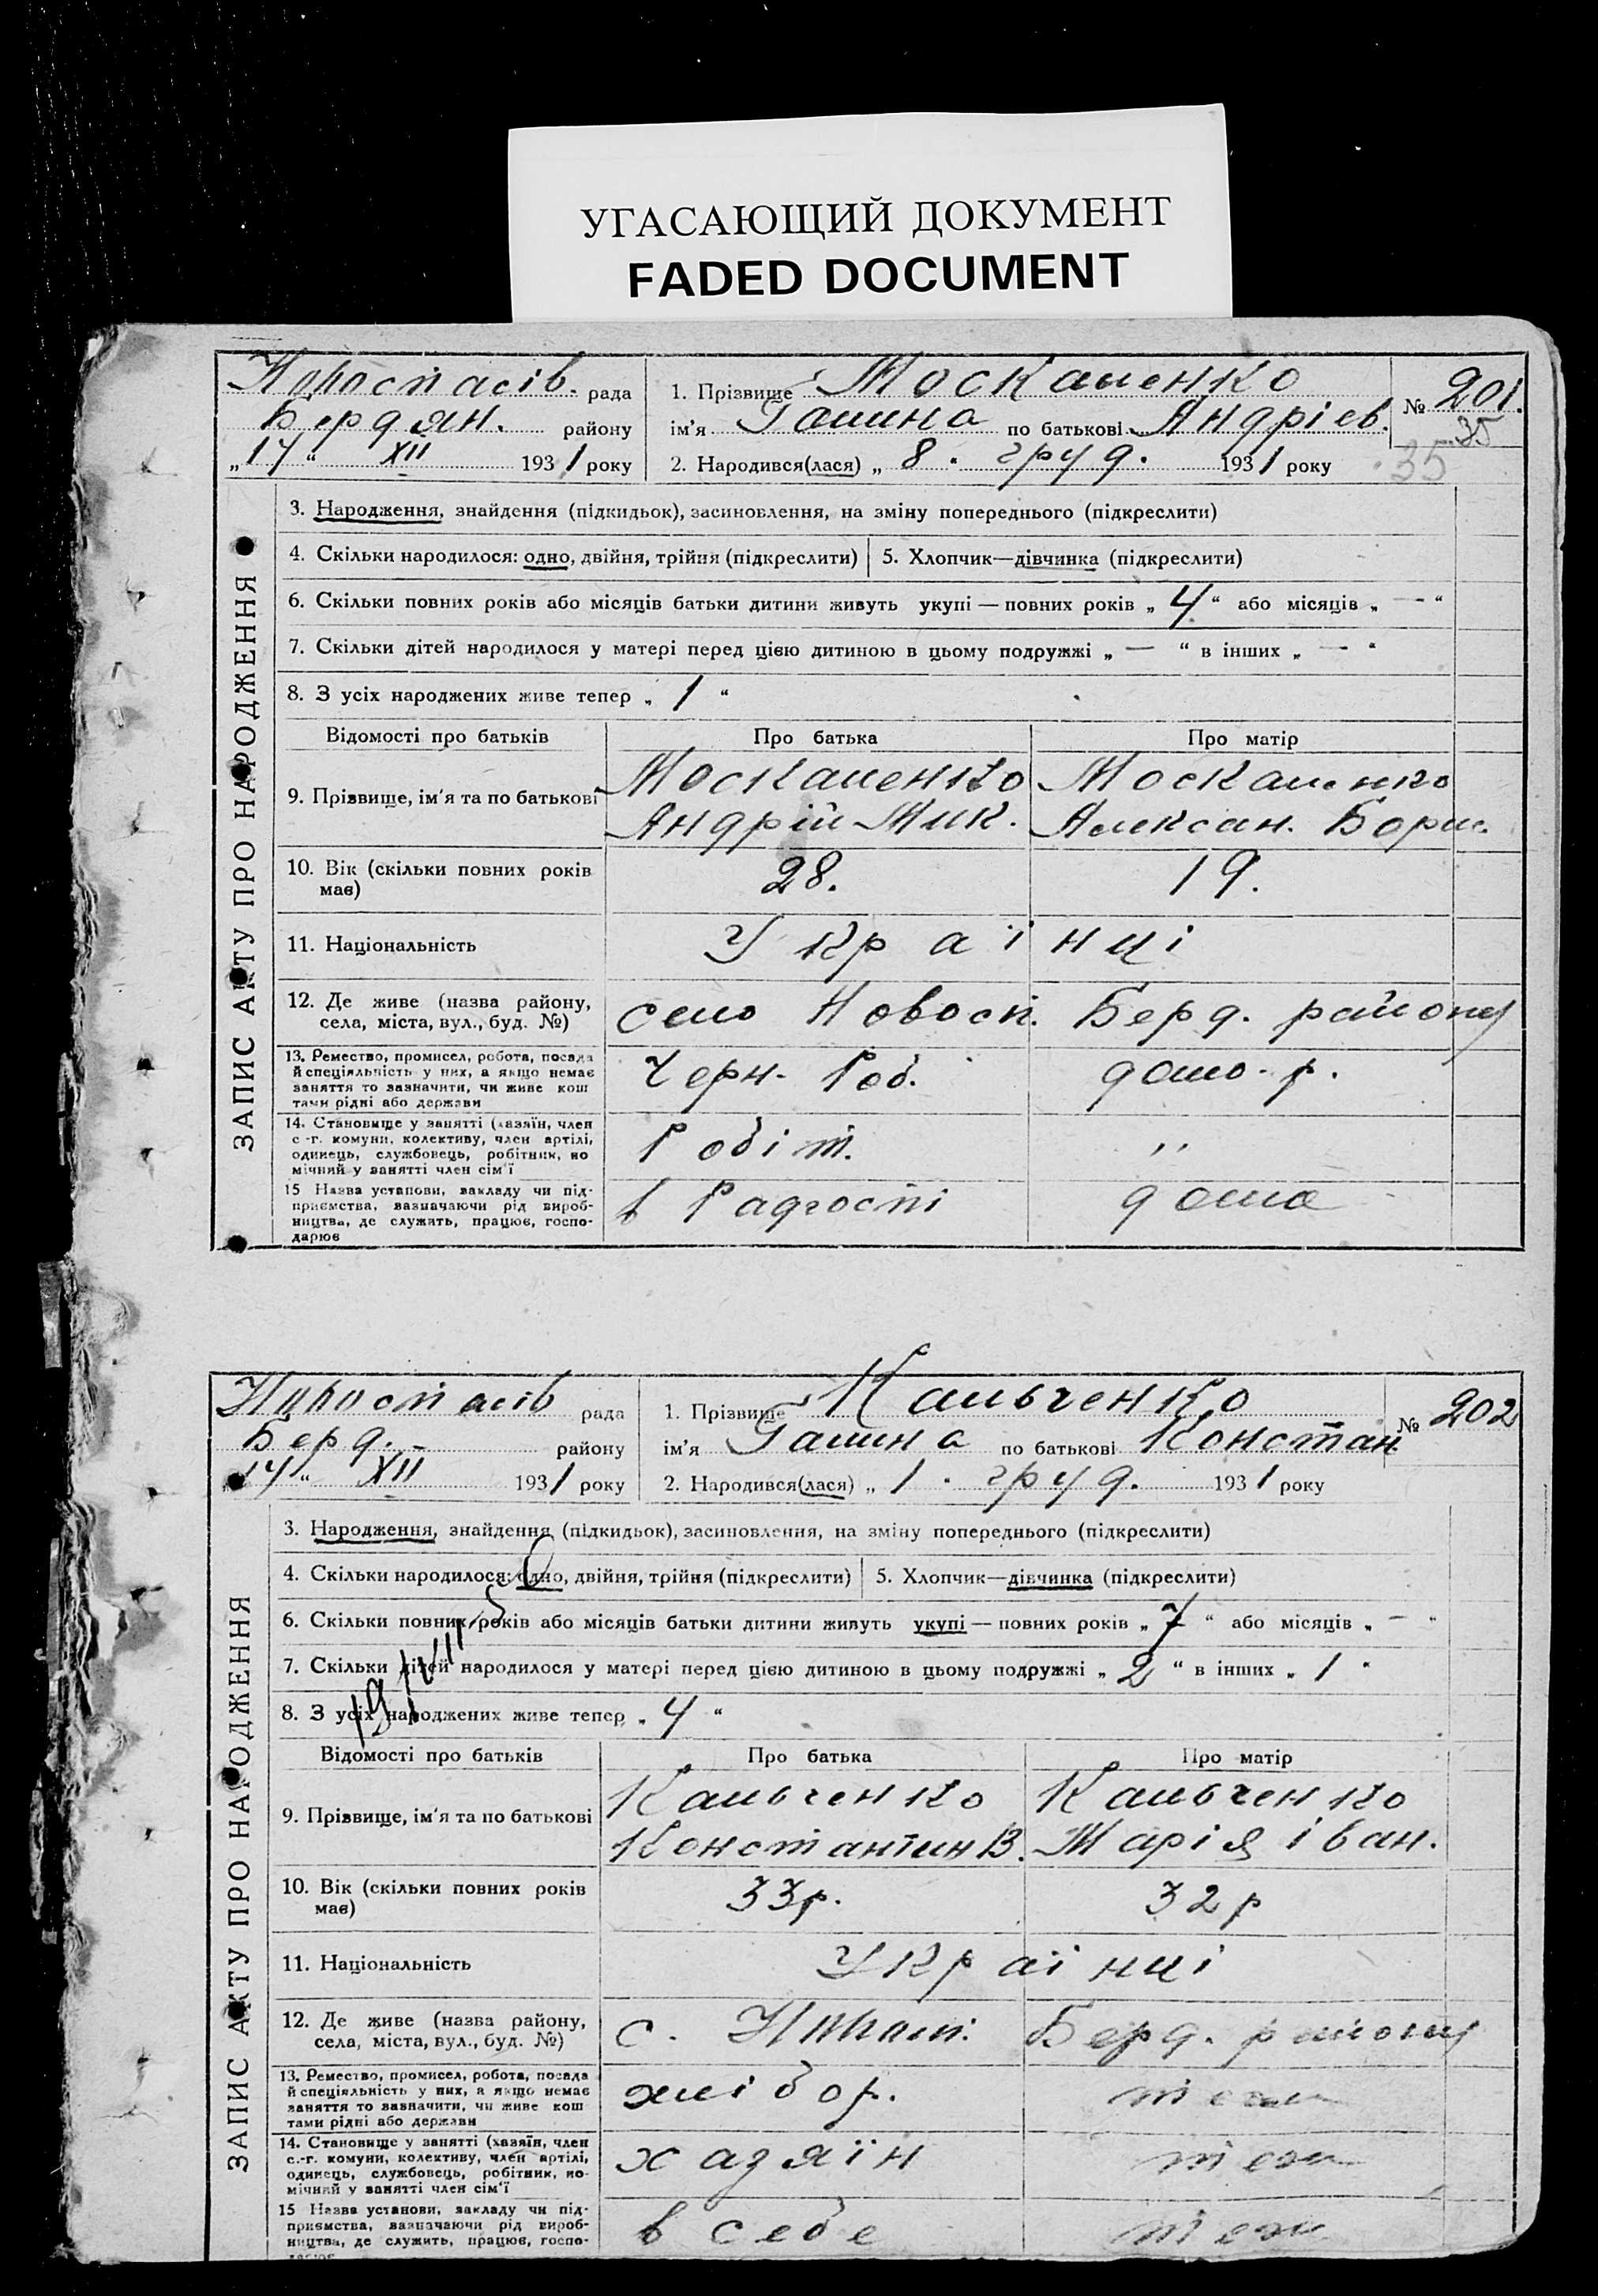 УГАСАЮЩИЙ ДОКУМЕНТ
FADED DOCUMENT
Новоспасів. рада
Бердян. району
„14“ XII 1931 року
1. Прізвище Москаленко
ім'я Галина по батькові Андріев.
№ 201.
35
2. Народився(лася) „ 8. груд. 1931 року
35
ЗАПИС АКТУ ПРО НАРОДЖЕННЯ
3. Народження, знайдення (підкидьок), засиновлення, на зміну попереднього (підкреслити)
4. Скільки народилося: одно, двійня, трійня (підкреслити) 5. Хлопчик—дівчинка (підкреслити)
6. Скільки повних років або місяців батьки дитини живуть укупі — повних років „ 4 “ або місяців „ — “
7. Скільки дітей народилося у матері перед цією дитиною в цьому подружжі „ — “ в інших „ — “
8. З усіх народжених живе тепер „ 1 “
Відомості про батьків Про батька Про матір
9. Прізвище, ім'я та по батькові
Москаленко Москаленко
Андрій Мик. Алексан. Борис.
10. Вік (скільки повних років
має)
28. 19.
11. Національність Українці
12. Де живе (назва району,
села, міста, вул., буд. №)
село Новосп. Берд. району
13. Ремество, промисел, робота, посада
й спеціяльність у них, а якщо немає
заняття то зазначити, чи живе кош
тами рідні або держави
Черн. Роб. дом. р.
14. Становище у занятті (хазяїн, член
с -г. комуни, колективу, член артілі,
одинець, службовець, робітник, по
мічний у занятті член сім'ї
Робіт. ,,
15 Назва установи, закладу чи під-
приємства, зазначаючи рід вироб-
ництва, де служить, працює, госпо-
дарює
в Радгоспі дома
Новоспасів рада
Берд. району
„14“ XII 1931 року
1. Прізвище Кальченко
ім'я Галина по батькові Констан
№ 202
2. Народився(лася) „ 1. груд. 1931 року
ЗАПИС АКТУ ПРО НАРОДЖЕННЯ
3. Народження, знайдення (підкидьок), засиновлення, на зміну попереднього (підкреслити)
4. Скільки народилося: одно, двійня, трійня (підкреслити) 5. Хлопчик—дівчинка (підкреслити)
6. Скільки повних років або місяців батьки дитини живуть укупі — повних років „ 7 “ або місяців „ — “
7. Скільки дітей народилося у матері перед цією дитиною в цьому подружжі „ 2 “ в інших „ 1 “
8. З усіх народжених живе тепер „ 4 “
Відомості про батьків Про батька Про матір
9. Прізвище, ім'я та по батькові
Кальченко Кальченко
Константин В. Марія Іван.
10. Вік (скільки повних років
має)
33р. 32р
11. Національність Українці
12. Де живе (назва району,
села, міста, вул., буд. №)
с. Берд. району
13. Ремество, промисел, робота, посада
й спеціяльність у них, а якщо немає
заняття то зазначити, чи живе кош
тами рідні або держави
хлібор. теж
14. Становище у занятті (хазяїн, член
с.-г. комуни, колективу, член артілі,
одинець, службовець, робітник, по-
мічний у занятті член сім'ї
хазяїн теж
15 Назва установи, закладу чи під-
приємства, зазначаючи рід вироб-
ництва, де служить, працює, госпо-
в себе теж